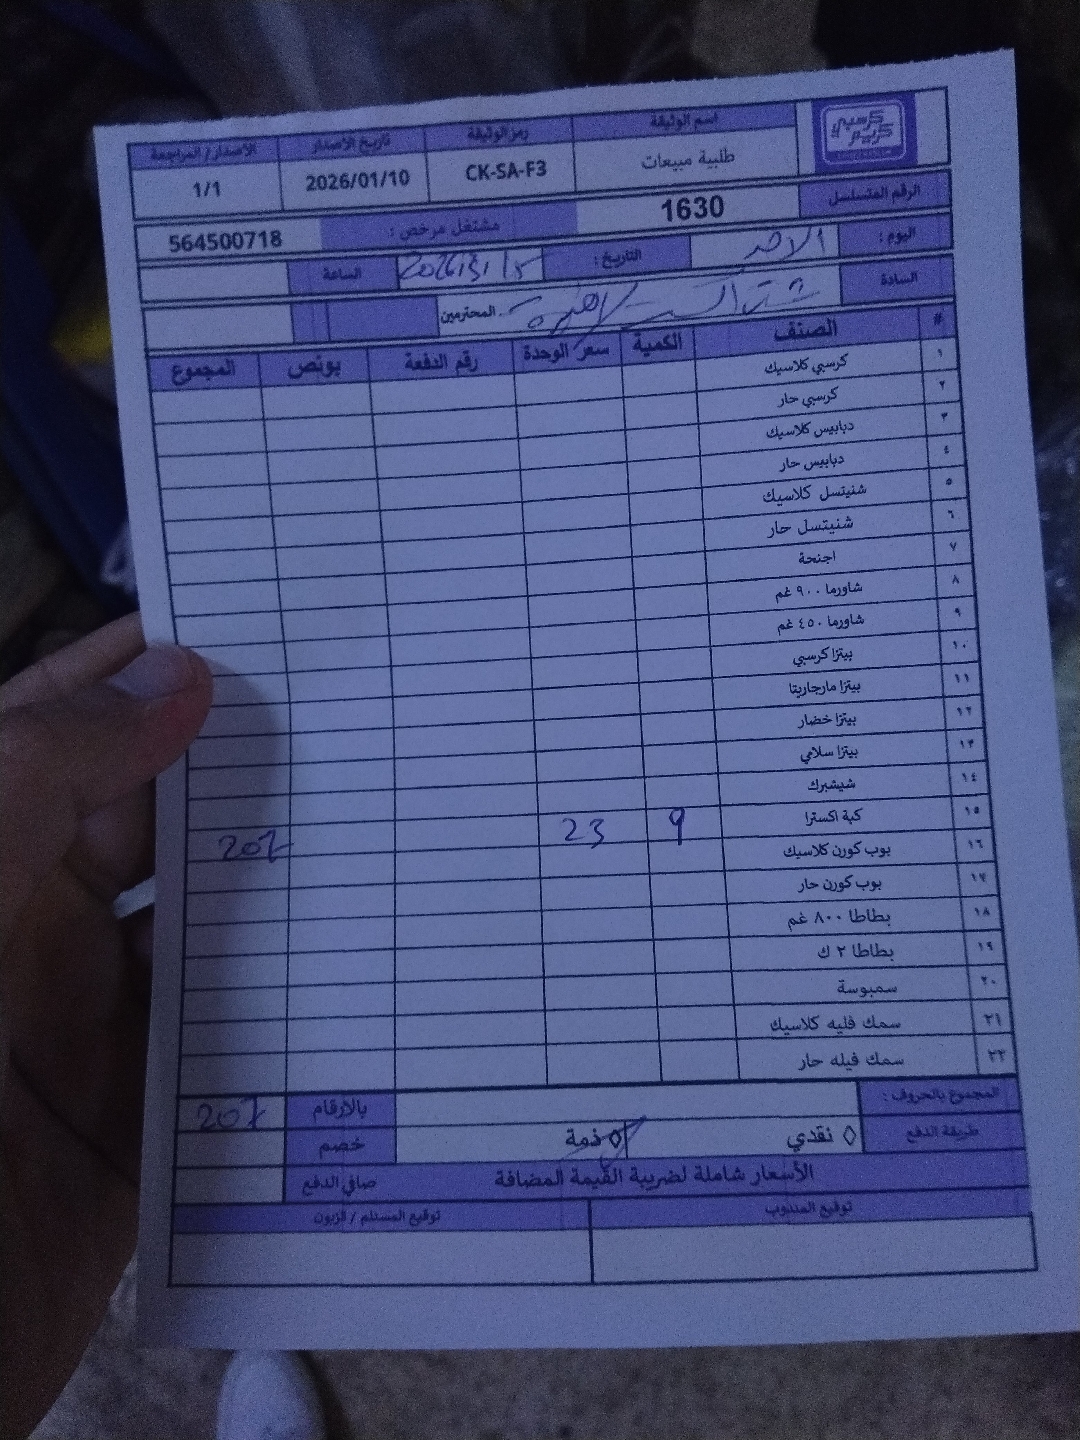 كرسبي كريم
اسم الوثيقة رمز الوثيقة تاريخ الاصدار الاصدار / المراجعة
طلبية مبيعات CK-SA-F3 2026/01/10 1/1
الرقم المتسلسل 1630 مشتغل مرخص : 564500718
اليوم : الاحد التاريخ : الساعة
السادة المحترمين
# الصنف الكمية سعر الوحدة رقم الدفعة بونص المجموع
١ كرسبي كلاسيك
٢ كرسبي حار
٣ دبابيس كلاسيك
٤ دبابيس حار
٥ شنيتسل كلاسيك
٦ شنيتسل حار
٧ اجنحة
٨ شاورما ٩٠٠ غم
٩ شاورما ٤٥٠ غم
١٠ بيتزا كرسبي
١١ بيتزا مارجاريتا
١٢ بيتزا خضار
١٣ بيتزا سلامي
١٤ شيشبرك
١٥ كبة اكسترا 9 23 207
١٦ بوب كورن كلاسيك
١٧ بوب كورن حار
١٨ بطاطا ٨٠٠ غم
١٩ بطاطا ٢ ك
٢٠ سمبوسة
٢١ سمك فليه كلاسيك
٢٢ سمك فيله حار
المجموع بالحروف : بالارقام 207
طريقة الدفع ◊ نقدي ◊ ذمة خصم
الأسعار شاملة لضريبة القيمة المضافة صافي الدفع
توقيع المندوب توقيع المستلم / الزبون